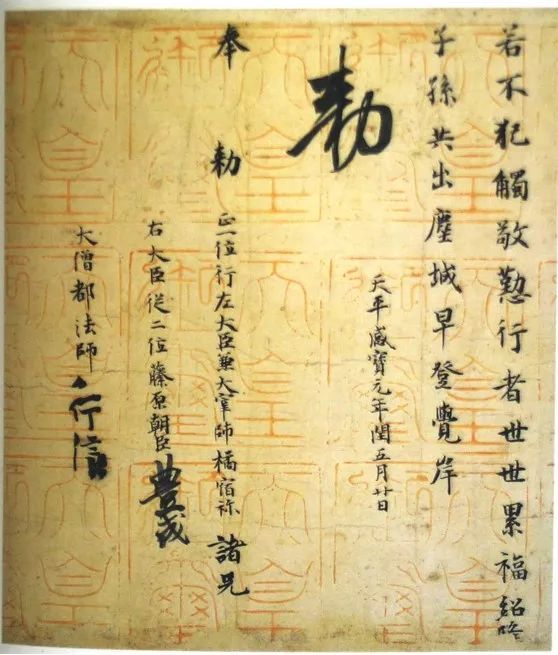 若不犯觸敬懃行者世世累福紹隆
子孫共出塵城早登覺岸
天平感寶元年閏五月廿日
勅
奉
勅
正一位行左大臣兼大宰帥橘宿祢諸兄
右大臣從二位藤原朝臣豊成
大僧都法師行信